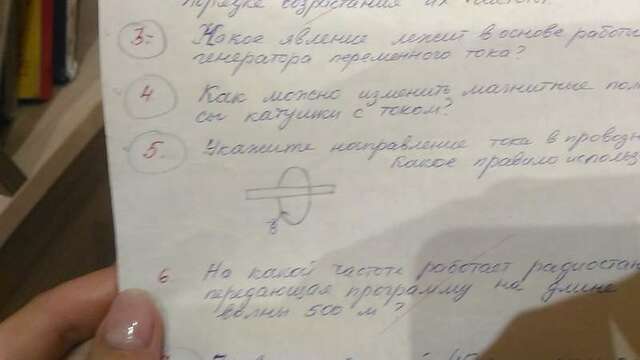 порядке возрастания их частоты.
3. Какое явление лежит в основе работы
генератора переменного тока?
4 Как можно изменить магнитные
сы катушки с током?
5. Укажите направление тока в
Какое правило
B
6. На какой частоте работает
передающая программу на длине
волны 500 м?